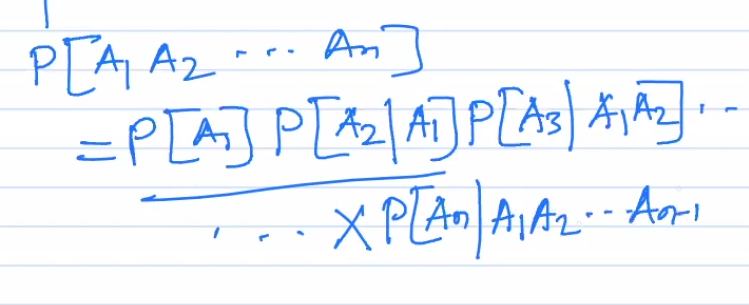 P[A₁ A₂ ... Aₙ]
= P[A₁] P[A₂|A₁] P[A₃|A₁A₂] ...
... × P[Aₙ|A₁A₂...Aₙ₋₁